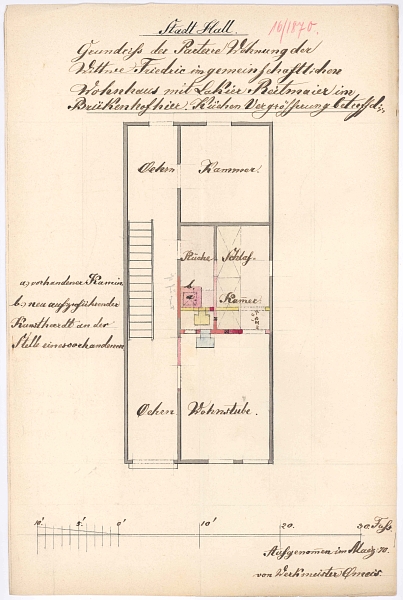 Stadt Hall.
16/1870.
Grundriss der Parterre Wohnung der
Wittwe Friedric im gemeinschaftlichen
Wohnhaus mit Lakier Reitmaier im
Brükenhof hier. Küchen Vergrösserung betreffd:
Oehrn
Kammer.
Küche
Schlaf-
b.
a.
Kamer.
a) vorhandener Kamin
b) neu aufzuführender
Kunstheerdt an der
Stelle eines vorhandenen
Oehrn
Wohnstube.
10' 5' 0' 10' 20. 30. Fuss.
Aufgenomen im Maerz 70.
von Werkmeister